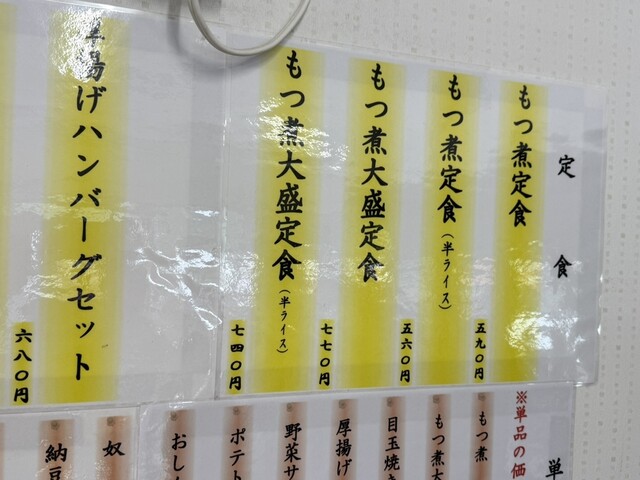 定食
もつ煮定食
五九〇円
もつ煮定食(半ライス)
五六〇円
もつ煮大盛定食
七七〇円
もつ煮大盛定食(半ライス)
七四〇円
揚げハンバーグセット
六八〇円
単
※単品の価
もつ煮
もつ煮大
目玉焼き
厚揚げ
野菜サ
ポテト
おし
奴
納豆